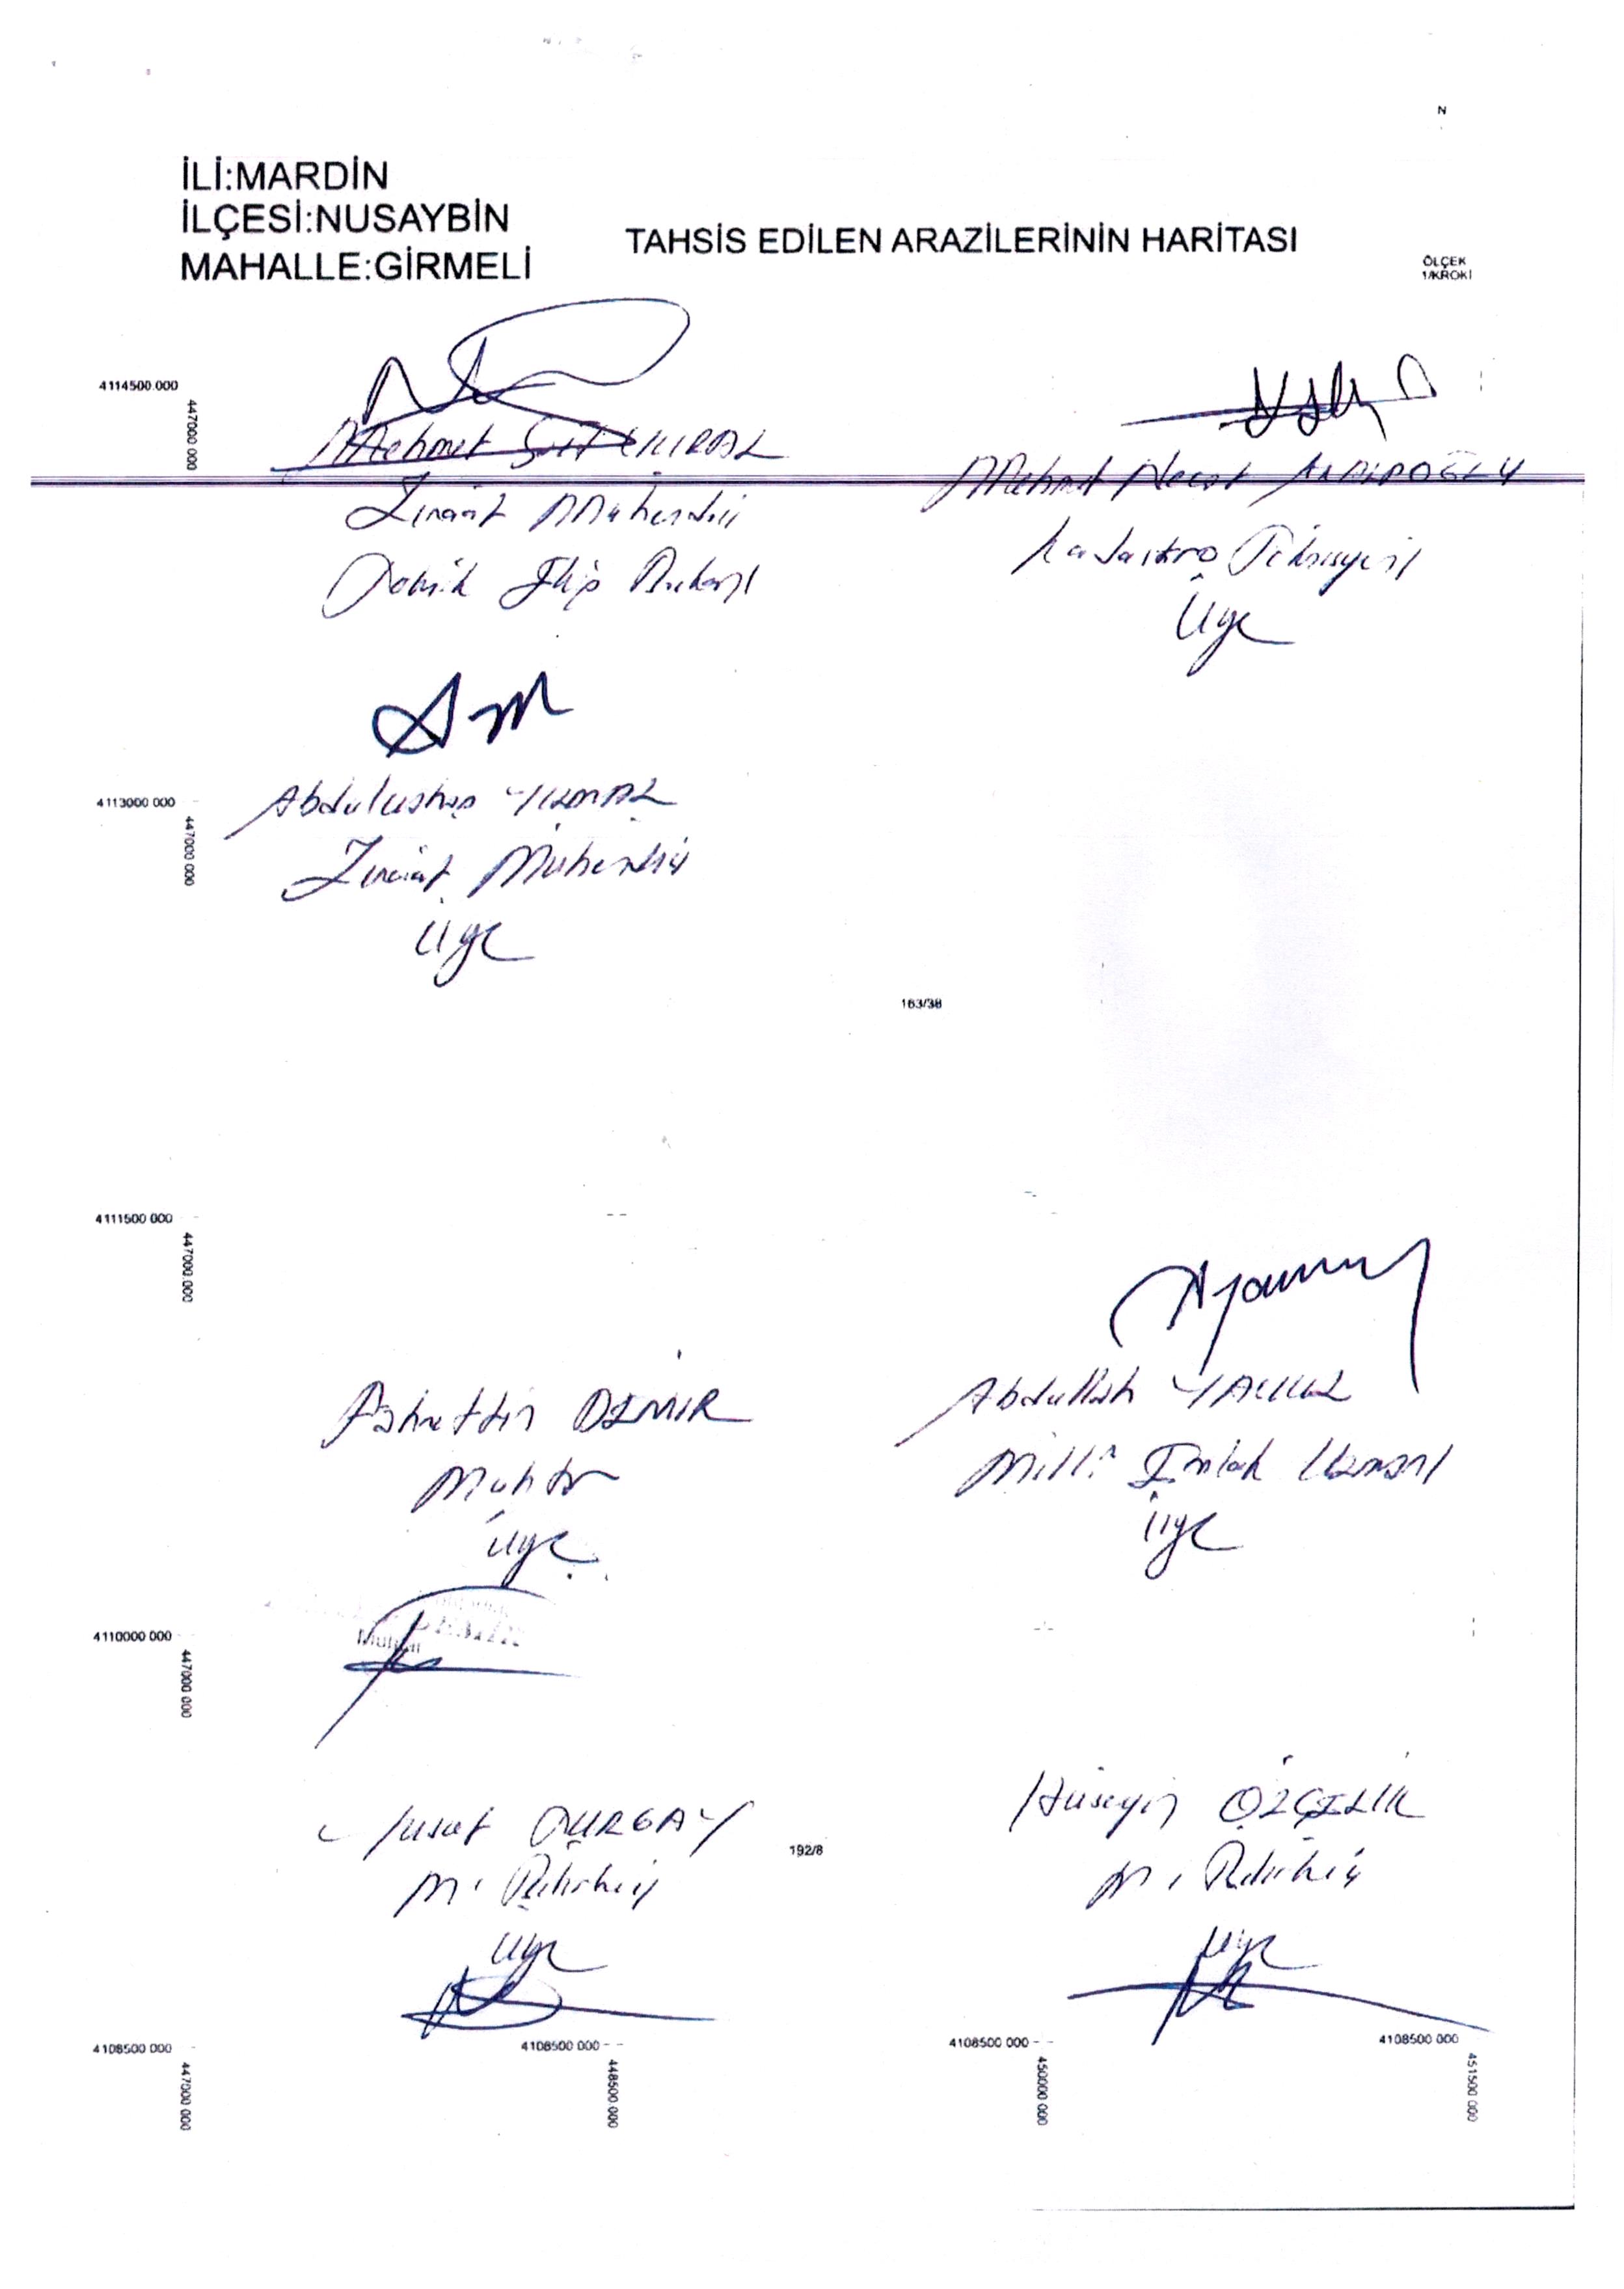 N
İLİ:MARDİN
İLÇESİ:NUSAYBİN
MAHALLE:GİRMELİ
TAHSİS EDİLEN ARAZİLERİNİN HARİTASI
ÖLÇEK
1/KROKİ
4114500 000
447000 000
Mehmet
Mehmet
Ziraat Mühendisi
Teknik Ekip Başkanı
Kadastro Teknisyeni
Üye
4113000 000
447000 000
YILMAZ
Ziraat Mühendisi
Üye
163/38
4111500 000
447000 000
Abdullah
Milli Emlak Uzmanı
Üye
Fahrettin DEMİR
Muhtar
Üye
4110000 000
447000 000
Muhtarı
Yusuf DURGAY
M. Bilirkişi
Üye
192/8
Hüseyin ÖZÇELİK
M. Bilirkişi
Üye
4108500 000
447000 000
4108500 000
448500 000
4108500 000
450000 000
4108500 000
451500 000